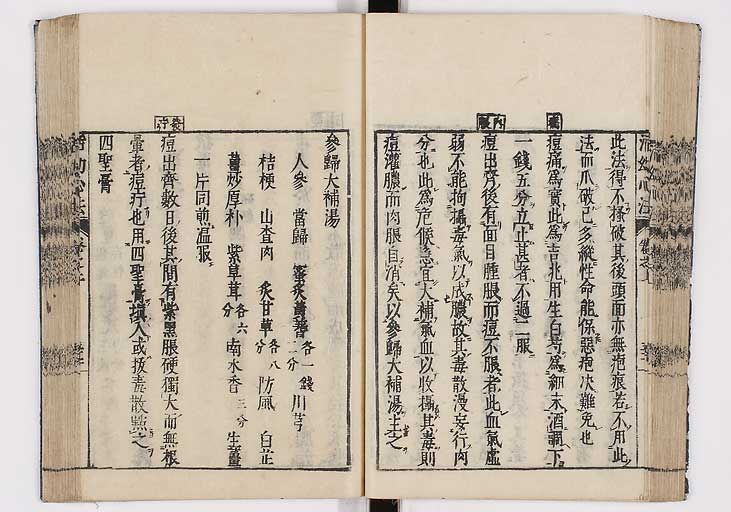 此法得不搔破其後頭面亦無疤痕若不用此
法而爪破已多縱性命能保惡疤決難免也
痘痛爲實此爲吉兆用生白芍爲細末酒調下
一錢五分立止甚者不過二服
內脹
痘出齊後有面目腫脹而痘不脹者此血氣虛
弱不能拘攝毒氣以成膿故其毒散漫妄行肉
分也此爲危候急宜大補氣血以收攝其毒則
痘灌膿而肉脹自消矣以參歸大補湯主之
參歸大補湯
人參 當歸 蜜炙黃芪各一錢二分 川芎
桔梗 山查肉 炙甘草各八分 防風 白芷
薑炒厚朴 紫草茸各六分 南木香三分 生薑
一片同煎溫服
痘疔
痘出齊數日後其間有紫黑脹硬獨大而無根
暈者痘疔也用四聖膏塡入或拔毒散點之
四聖膏